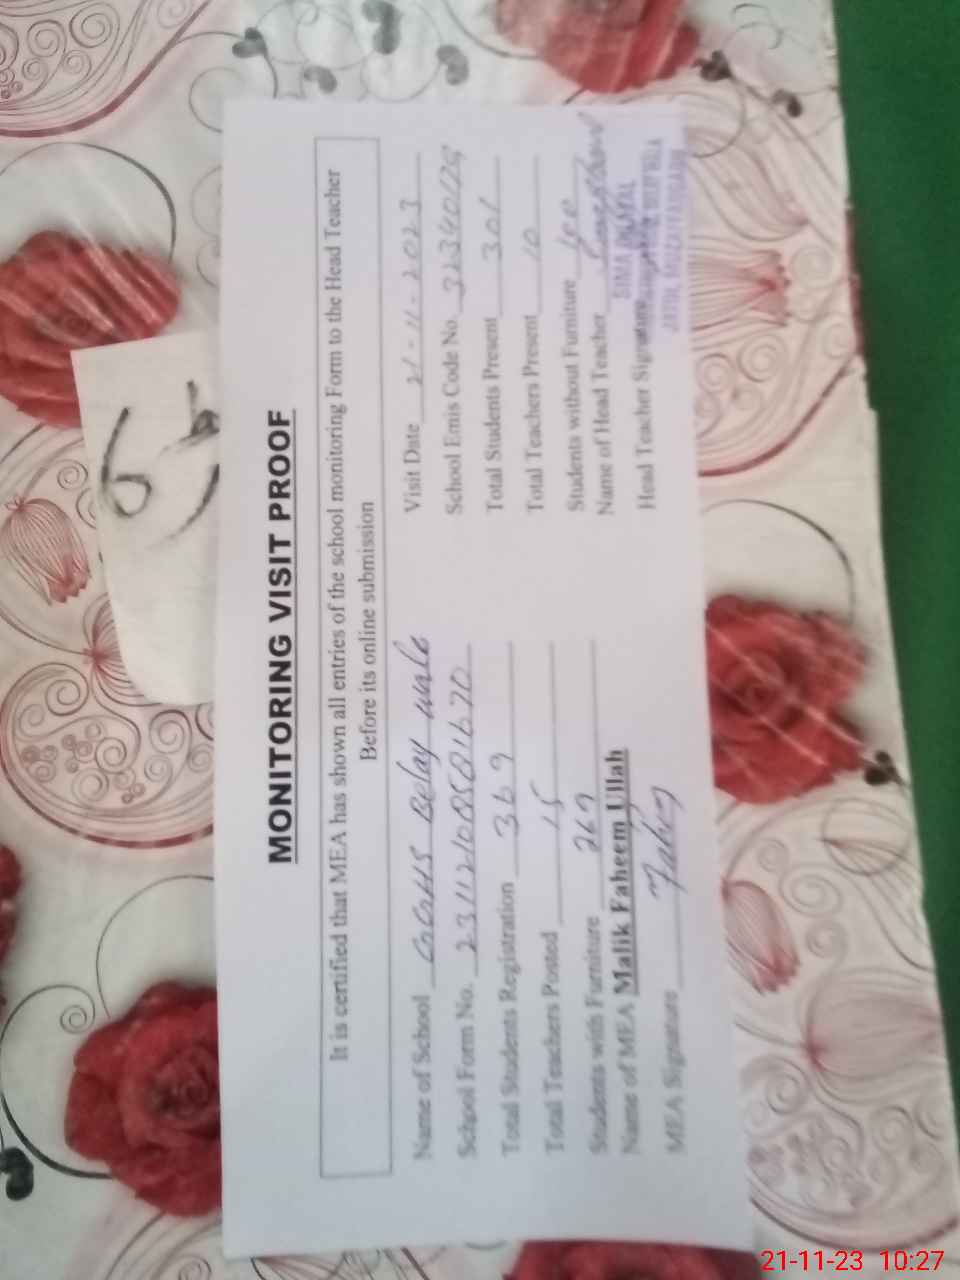 MONITORING VISIT PROOF
It is certified that MEA has shown all entries of the school monitoring Form to the Head Teacher
Before its online submission
Name of School GGHS Belay wala Visit Date 21-11-2023
School Form No. 2311210858 School Emis Code No.
Total Students Registration 369 Total Students Present 301
Total Teachers Posted 15 Total Teachers Present 10
Students with Furniture 269 Students without Furniture 100
Name of MEA Malik Faheem Ullah Name of Head Teacher
MEA Signature Fahim Head Teacher Signature
SIMA
21-11-23 10:27